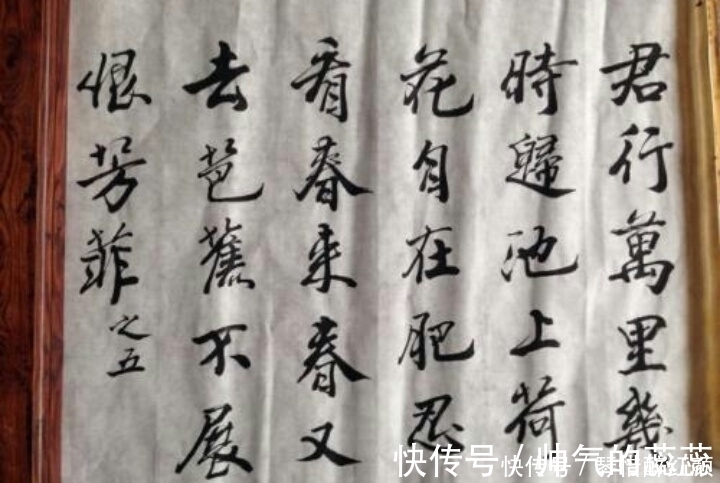 君行萬里幾
時歸池上荷
花自在肥忍
看春来春又
去芭蕉不展
恨芳菲
之五
快传号/帅气的芬芬
快传号/